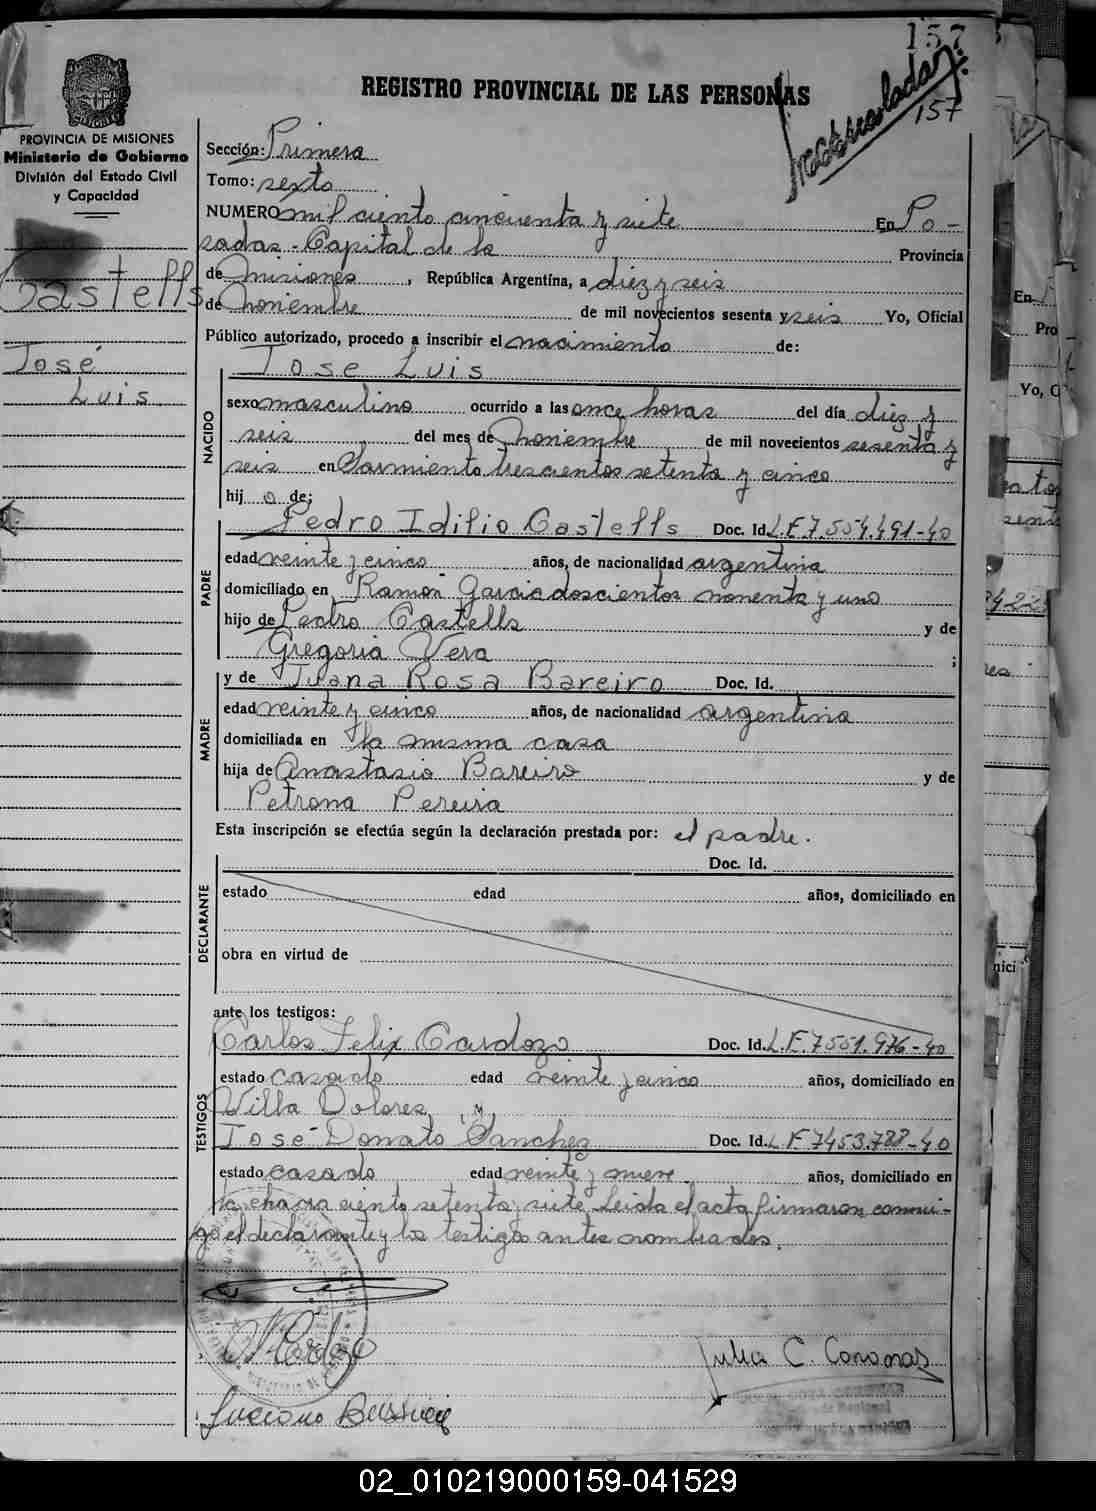 157
REGISTRO PROVINCIAL DE LAS PERSONAS
157
PROVINCIA DE MISIONES
Ministerio de Gobierno
División del Estado Civil
y Capacidad
Castells
José
Luis
Sección: Primera
Tomo: sexto
NUMERO mil ciento cincuenta y siete En Po-
sadas - Capital de la Provincia
de misiones, República Argentina, a diez y seis
de noviembre de mil novecientos sesenta y seis Yo, Oficial
Público autorizado, procedo a inscribir el nacimiento de:
Jose Luis
NACIDO
sexo masculino ocurrido a las once horas del día diez y
seis del mes de noviembre de mil novecientos sesenta y
seis en Sarmiento trescientos setenta y cinco
hij o de:
Pedro Idilio Castells Doc. Id. L.E.7.554.491-40
PADRE
edad veinte y cinco años, de nacionalidad argentina
domiciliado en Ramón Garcia doscientos noventa y uno
hijo de Pedro Castells y de
Gregoria Vera ;
y de Juana Rosa Bareiro Doc. Id.
MADRE
edad veinte y cinco años, de nacionalidad argentina
domiciliada en la misma casa
hija de Anastasio Bareiro y de
Petrona Pereira
Esta inscripción se efectúa según la declaración prestada por: el padre.
DECLARANTE
Doc. Id.
estado edad años, domiciliado en
obra en virtud de
ante los testigos:
Carlos Felix Cardozo Doc. Id. L.E.7551.976-40
TESTIGOS
estado casado edad veinte y cinco años, domiciliado en
Villa Dolores
José Donato Sanchez Doc. Id. L.E.7453.788-40
estado casado edad veinte y nueve años, domiciliado en
la chacra ciento setenta y siete. Leida el acta firmaron conmi-
go el declarante y los testigos antes nombrados.
Cardozo
Julia C. Coronas
Luciano
02_010219000159-041529